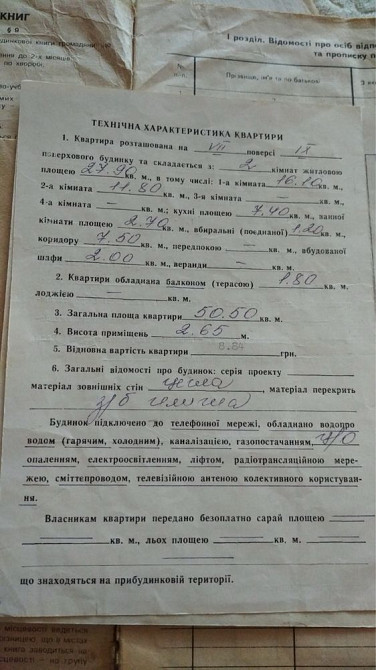 КНИГ
І розділ. Відомості про осіб
та прописку
Прізвище, ім'я та по батькові
ТЕХНІЧНА ХАРАКТЕРИСТИКА КВАРТИРИ
1. Квартира розташована на VII поверсі IX
поверхового будинку та складається з: 2 кімнат житловою
площею 27.90 кв. м., в тому числі: 1-а кімната 16.10 кв. м.,
2-а кімната 11.80 кв. м., 3-я кімната — кв. м.,
4-а кімната — кв. м.; кухні площею 7,40 кв. м., ванної
кімнати площею 2.70 кв. м., вбиральні (поєднаної) 1,20 кв. м.,
коридору 7.50 кв. м., передпокою — кв. м., вбудованої
шафи 2.00 кв. м., веранди — кв. м.
2. Квартири обладнана балконом (терасою) 1.80 кв. м.
лоджією — кв. м.
3. Загальна площа квартири 50.50 кв. м.
4. Висота приміщень 2.65 м.
5. Відновна вартість квартири грн.
6. Загальні відомості про будинок: серія проекту
матеріал зовнішніх стін цегла, матеріал перекрить
з/б плита
Будинок підключено до телефонної мережі, обладнано водопро
водом (гарячим, холодним), каналізацією, газопостачанням,
опаленням, електроосвітленням, ліфтом, радіотрансляційною мере-
жею, сміттепроводом, телевізійною антеною колективного користуван-
ня.
Власникам квартири передано безоплатно сарай площею
кв. м., льох площею кв. м.
що знаходяться на прибудинковій території.